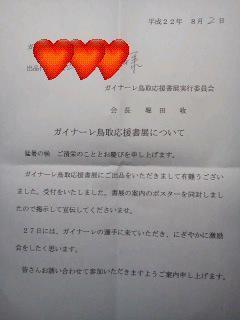 平成２２年 8月2日
ガ
出品
様
ガイナーレ鳥取応援書展実行委員会
会長 堀田 收
ガイナーレ鳥取応援書展について
猛暑の候 ご清栄のこととお慶びを申し上げます。
ガイナーレ鳥取応援書展にご出品をいただきまして有難うござい
ました。受付をいたしました。書展の案内のポスターを同封しまし
たので掲示して宣伝してくださいませ。
２７日には、ガイナーレの選手に来ていただき、にぎやかに激励
会をしたく思います。
皆さんお誘い合わせて参加いただきますようご案内申し上げます。